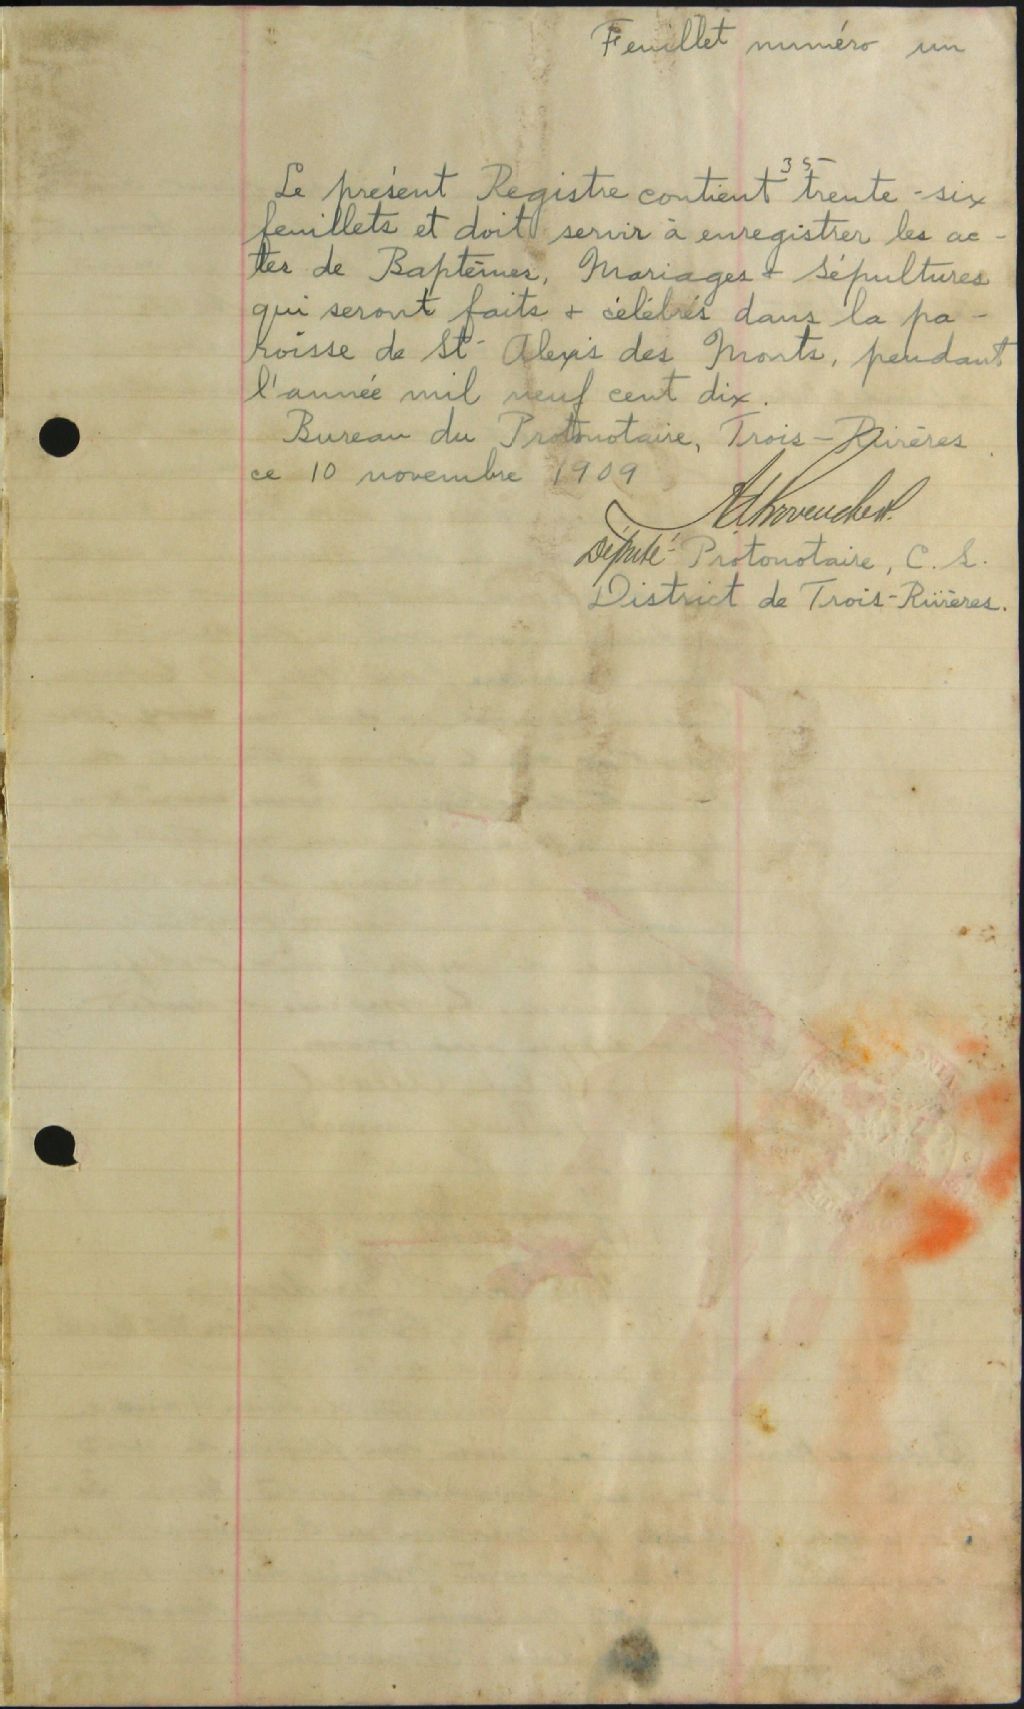 Feuillet numéro un
35
Le présent Registre contient trente-six
feuillets et doit servir à enregistrer les ac-
tes de Baptêmes, Mariages & Sépultures
qui seront faits & célébrés dans la pa-
roisse de St-Alexis des Monts, pendant
l'année mil neuf cent dix.
Bureau du Protonotaire, Trois-Rivières
ce 10 novembre 1909
Député-Protonotaire, C. S.
District de Trois-Rivières.